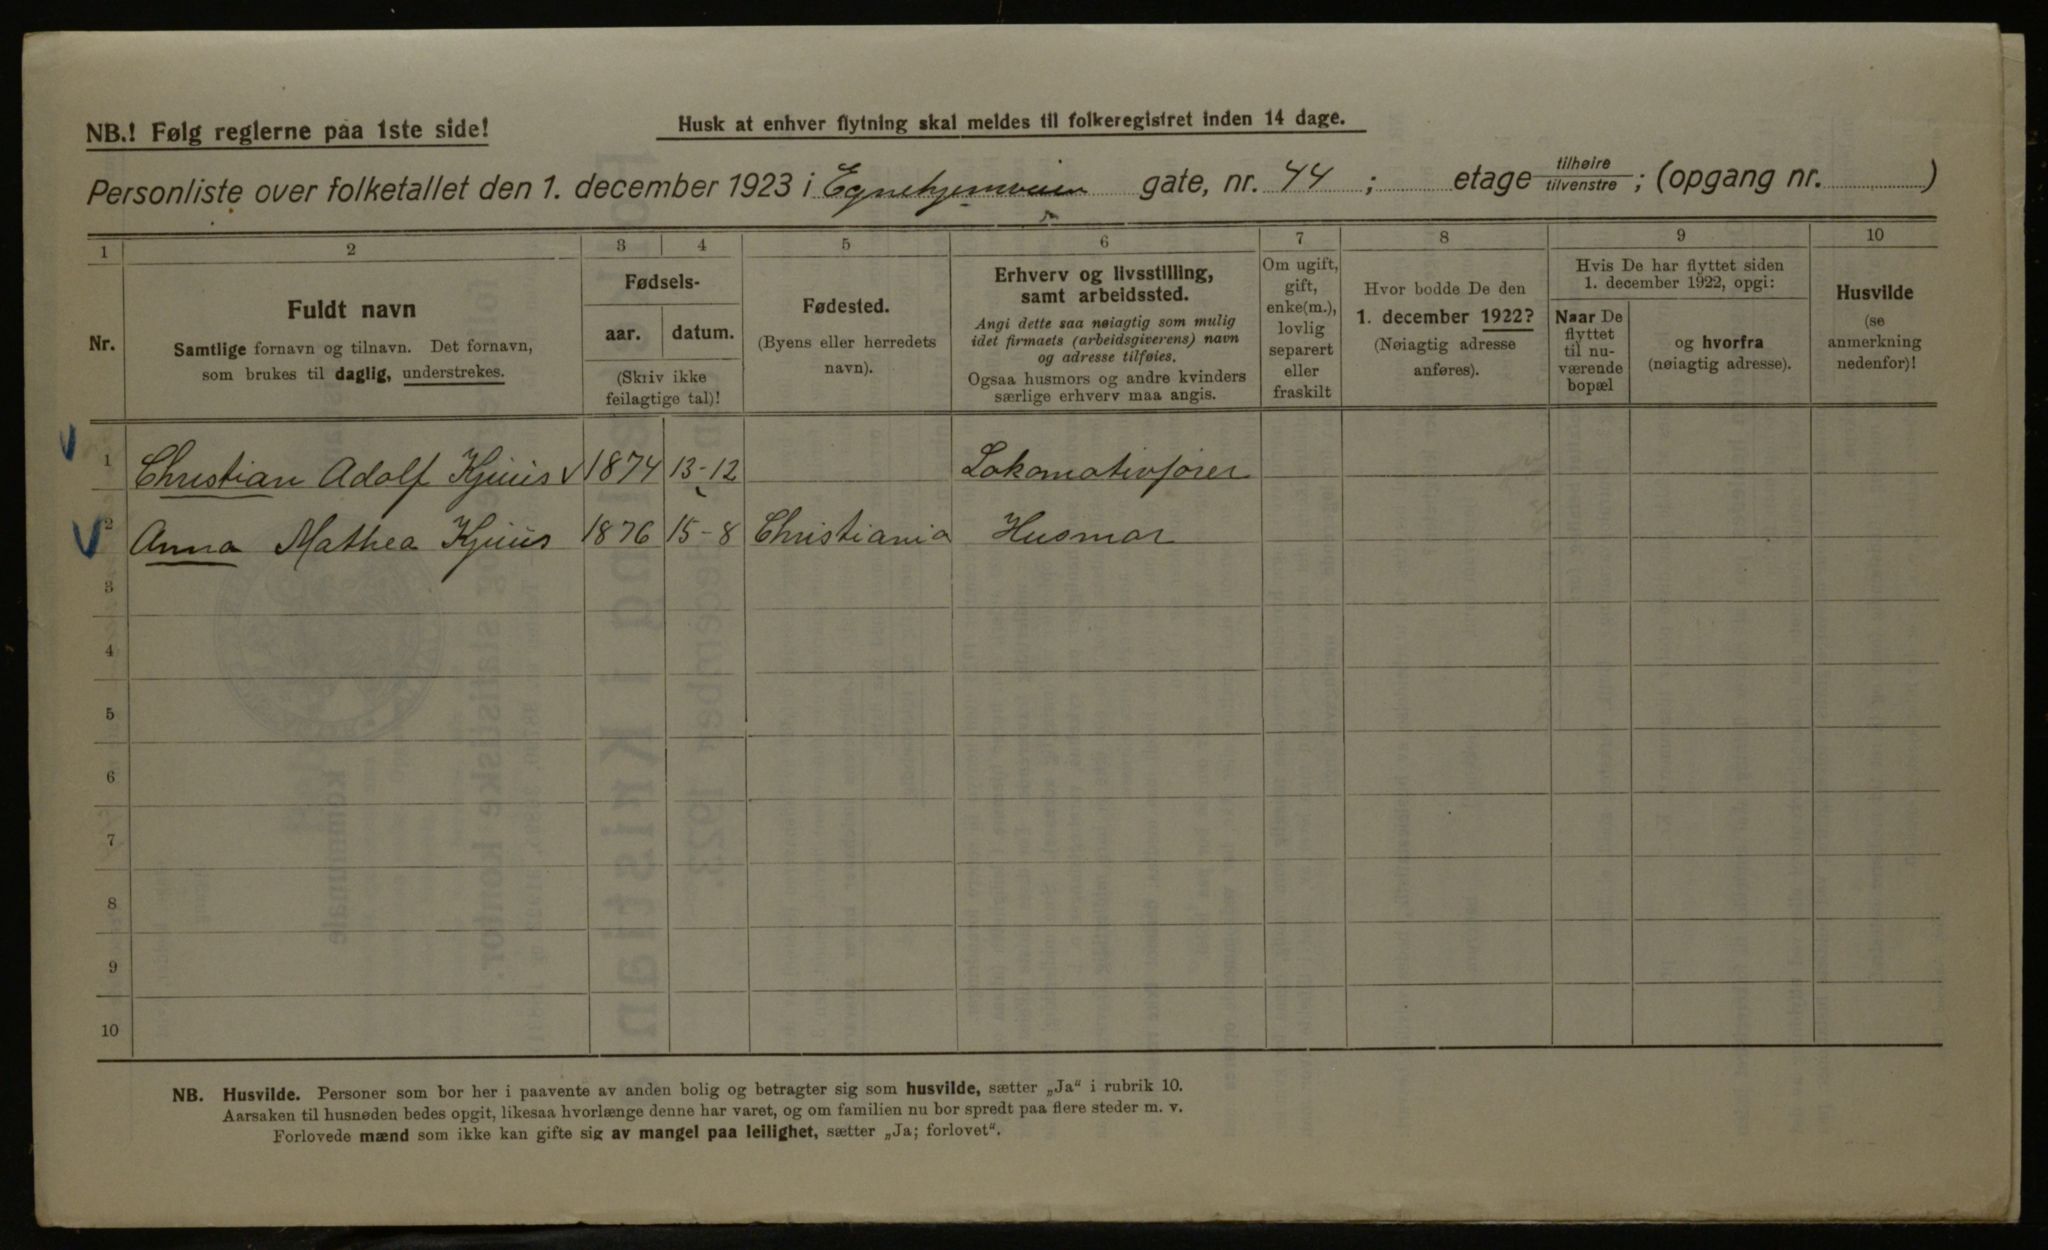 NB.! Følg reglerne paa 1ste side!
Husk at enhver flytning skal meldes til folkeregistret inden 14 dage.
Personliste over folketallet den 1. december 1923 i Egnehjemveien gate, nr. 44 ; etage tilhøire tilvenstre ; (opgang nr. )
1 2 3 4 5 6 7 8 9 10
Nr.
Fuldt navn
Samtlige fornavn og tilnavn. Det fornavn,
som brukes til daglig, understrekes.
Fødsels-
aar. datum.
(Skriv ikke
feilagtige tal)!
Fødested.
(Byens eller herredets
navn).
Erhverv og livsstilling,
samt arbeidssted.
Angi dette saa nøiagtig som mulig
idet firmaets (arbeidsgiverens) navn
og adresse tilføies.
Ogsaa husmors og andre kvinders
særlige erhverv maa angis.
Om ugift,
gift,
enke(m.),
lovlig
separert
eller
fraskilt
Hvor bodde De den
1. december 1922?
(Nøiagtig adresse
anføres).
Hvis De har flyttet siden
1. december 1922, opgi:
Naar De
flyttet
til nu-
værende
bopæl
og hvorfra
(nøiagtig adresse).
Husvilde
(se
anmerkning
nedenfor)!
1 Christian Adolf Kjuus 1874 13-12 Lokomotivfører
2 Anna Mathea Kjuus 1876 15-8 Christiania Husmor
3
4
5
6
7
8
9
10
NB. Husvilde. Personer som bor her i paavente av anden bolig og betragter sig som husvilde, sætter „Ja“ i rubrik 10.
Aarsaken til husnøden bedes opgit, likesaa hvorlænge denne har varet, og om familien nu bor spredt paa flere steder m. v.
Forlovede mænd som ikke kan gifte sig av mangel paa leilighet, sætter „Ja; forlovet“.